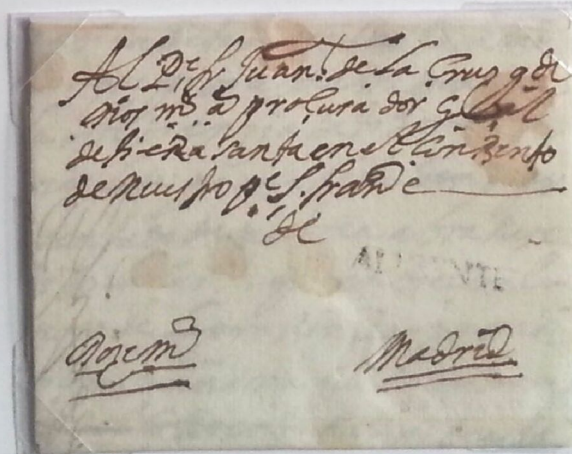 Al Pe fr Juan de la Cruz q de
Dios m a procurador g
de tierra santa en el Convento
de nuestro pe S. fran
de
ALICANTE
Madrid